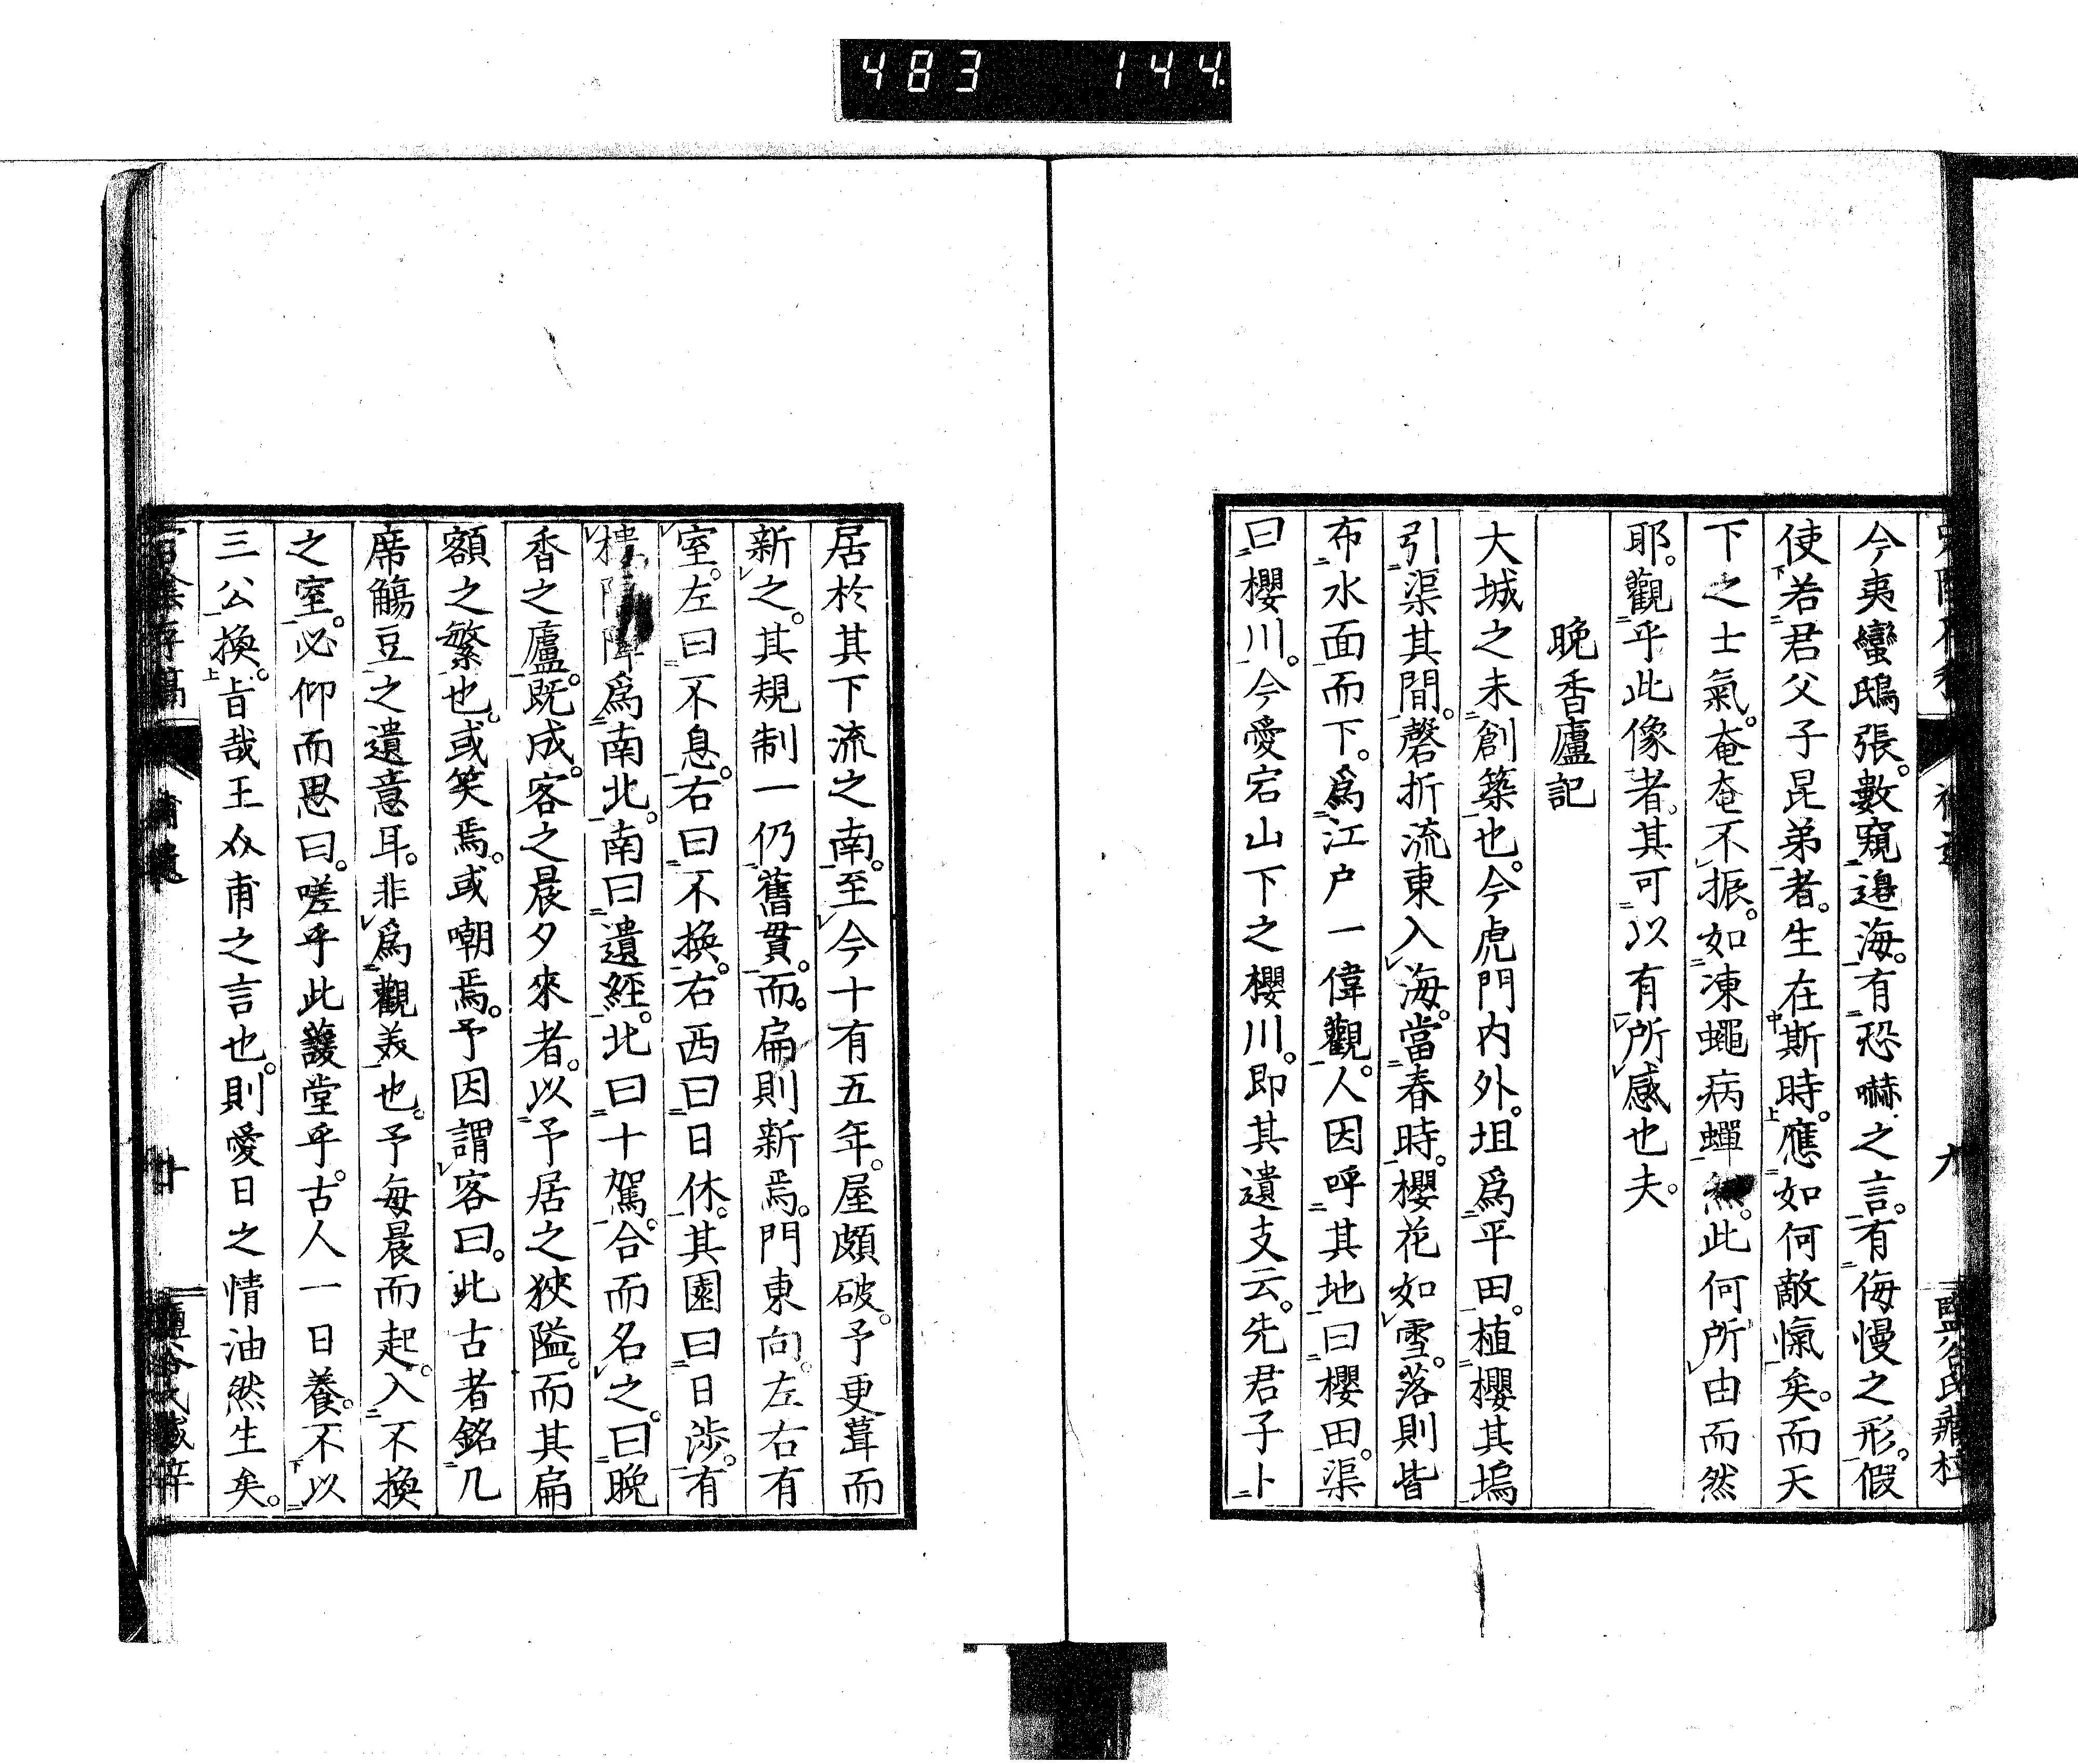 483 144
今夷蠻鴟張。數窺邊海。有恐嚇之言。有侮慢之形。假
使若君父子昆弟者。生在斯時。應如何敵愾矣。而天
下之士氣。奄奄不振。如凍蠅病蟬然。此何所由而然
耶。觀乎此像者。其可以有所感也夫。
晚香廬記
大城之未創築也。今虎門內外。坦爲平田。植櫻其塢
引渠其間。磬折流東入海。當春時。櫻花如雪。落則皆
布水面而下。爲江戶一偉觀。人因呼其地曰櫻田。渠
曰櫻川。今愛宕山下之櫻川。即其遺支云。先君子卜
居於其下流之南。至今十有五年。屋頗破。予更葺而
新之。其規制一仍舊貫。而扁則新焉。門東向。左右有
室。左曰不息。右曰不換。右西曰日休。其園曰日涉。有
樓障爲南北。南曰遺經。北曰十駕。合而名之。曰晚
香之廬。既成。客之晨夕來者。以予居之狹隘。而其扁
額之繁也。或笑焉。或嘲焉。予因謂客曰。此古者銘几
席觴豆之遺意耳。非爲觀美也。予每晨而起。入不換
之室。必仰而思曰。嗟乎此護堂乎。古人一日養。不以
三公換。旨哉王介甫之言也。則愛日之情油然生矣。
廿